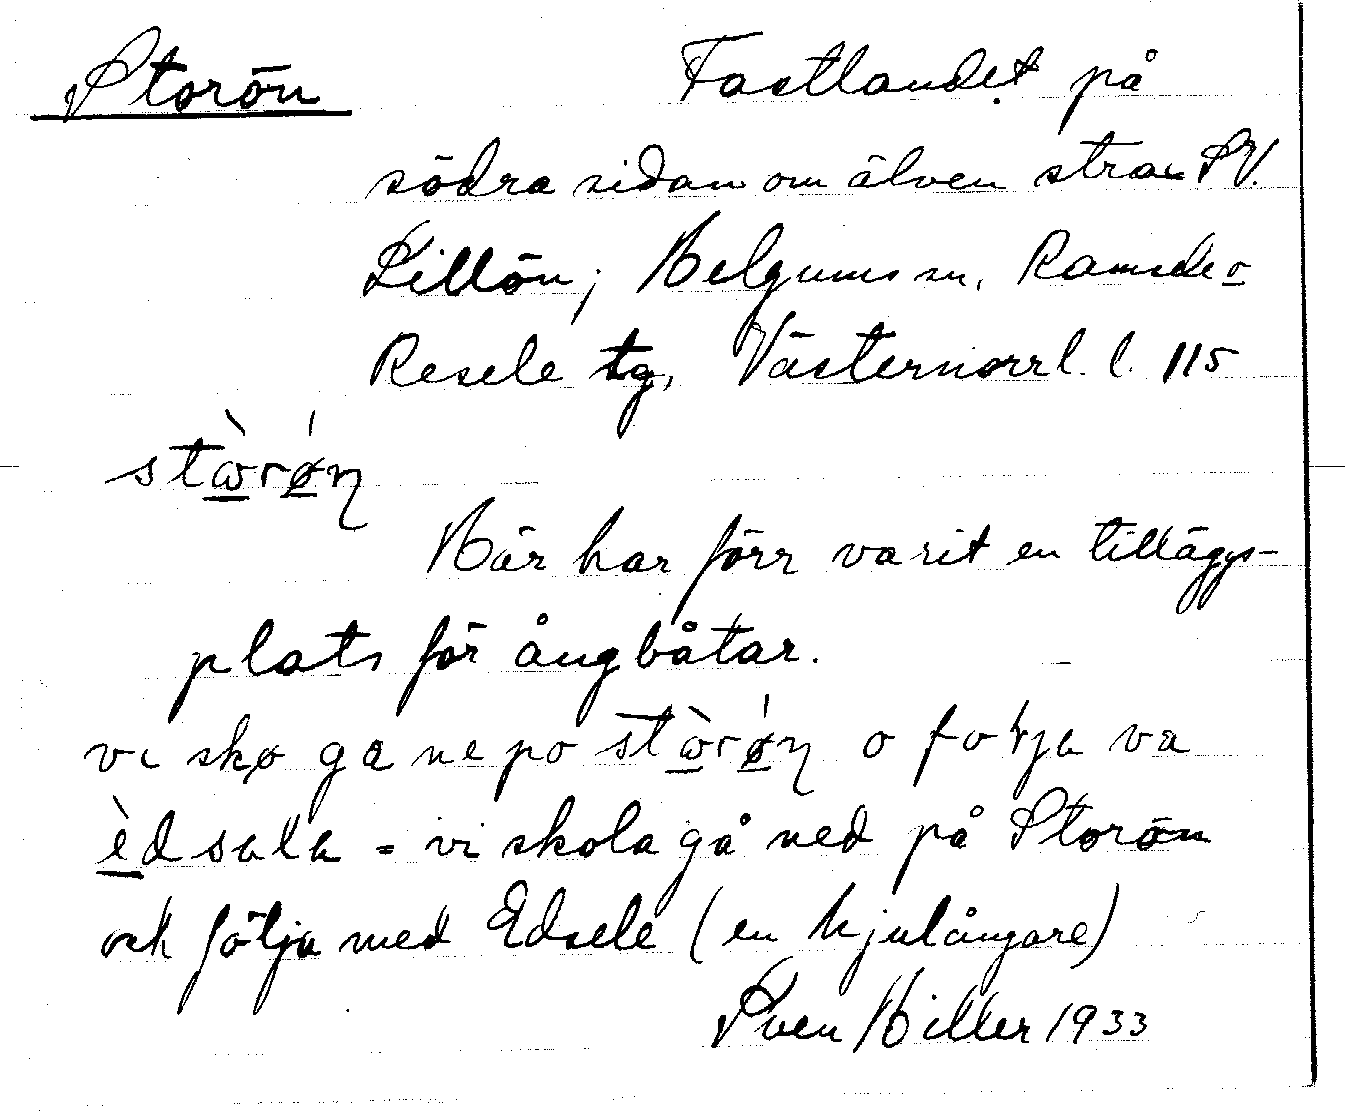 Storön Fastlandet på
södra sidan om älven strax SV.
Lillön; Helgums sn, Ramsele o
Resele tg, Västernorrl. l. 115
stὼrǿn
Här har förr varit en tilläggs-
plats för ångbåtar.
vi skø ga ne po stὼrǿn o følja va
èdsala = vi skola gå ned på Storön
och följa med Edsele (en hjulångare)
Sven Hiller 1933